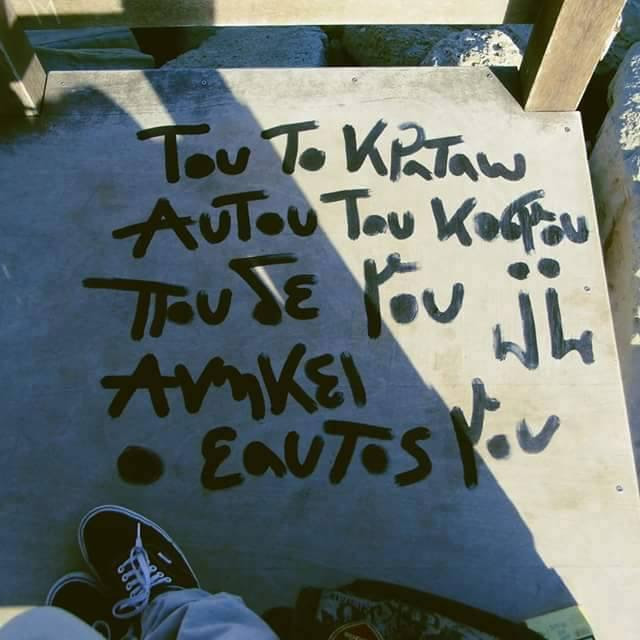 Του Το Κραταω
Αυτου Του Κοσμου
που δε μου
Ανηκει
ο εαυτος μου